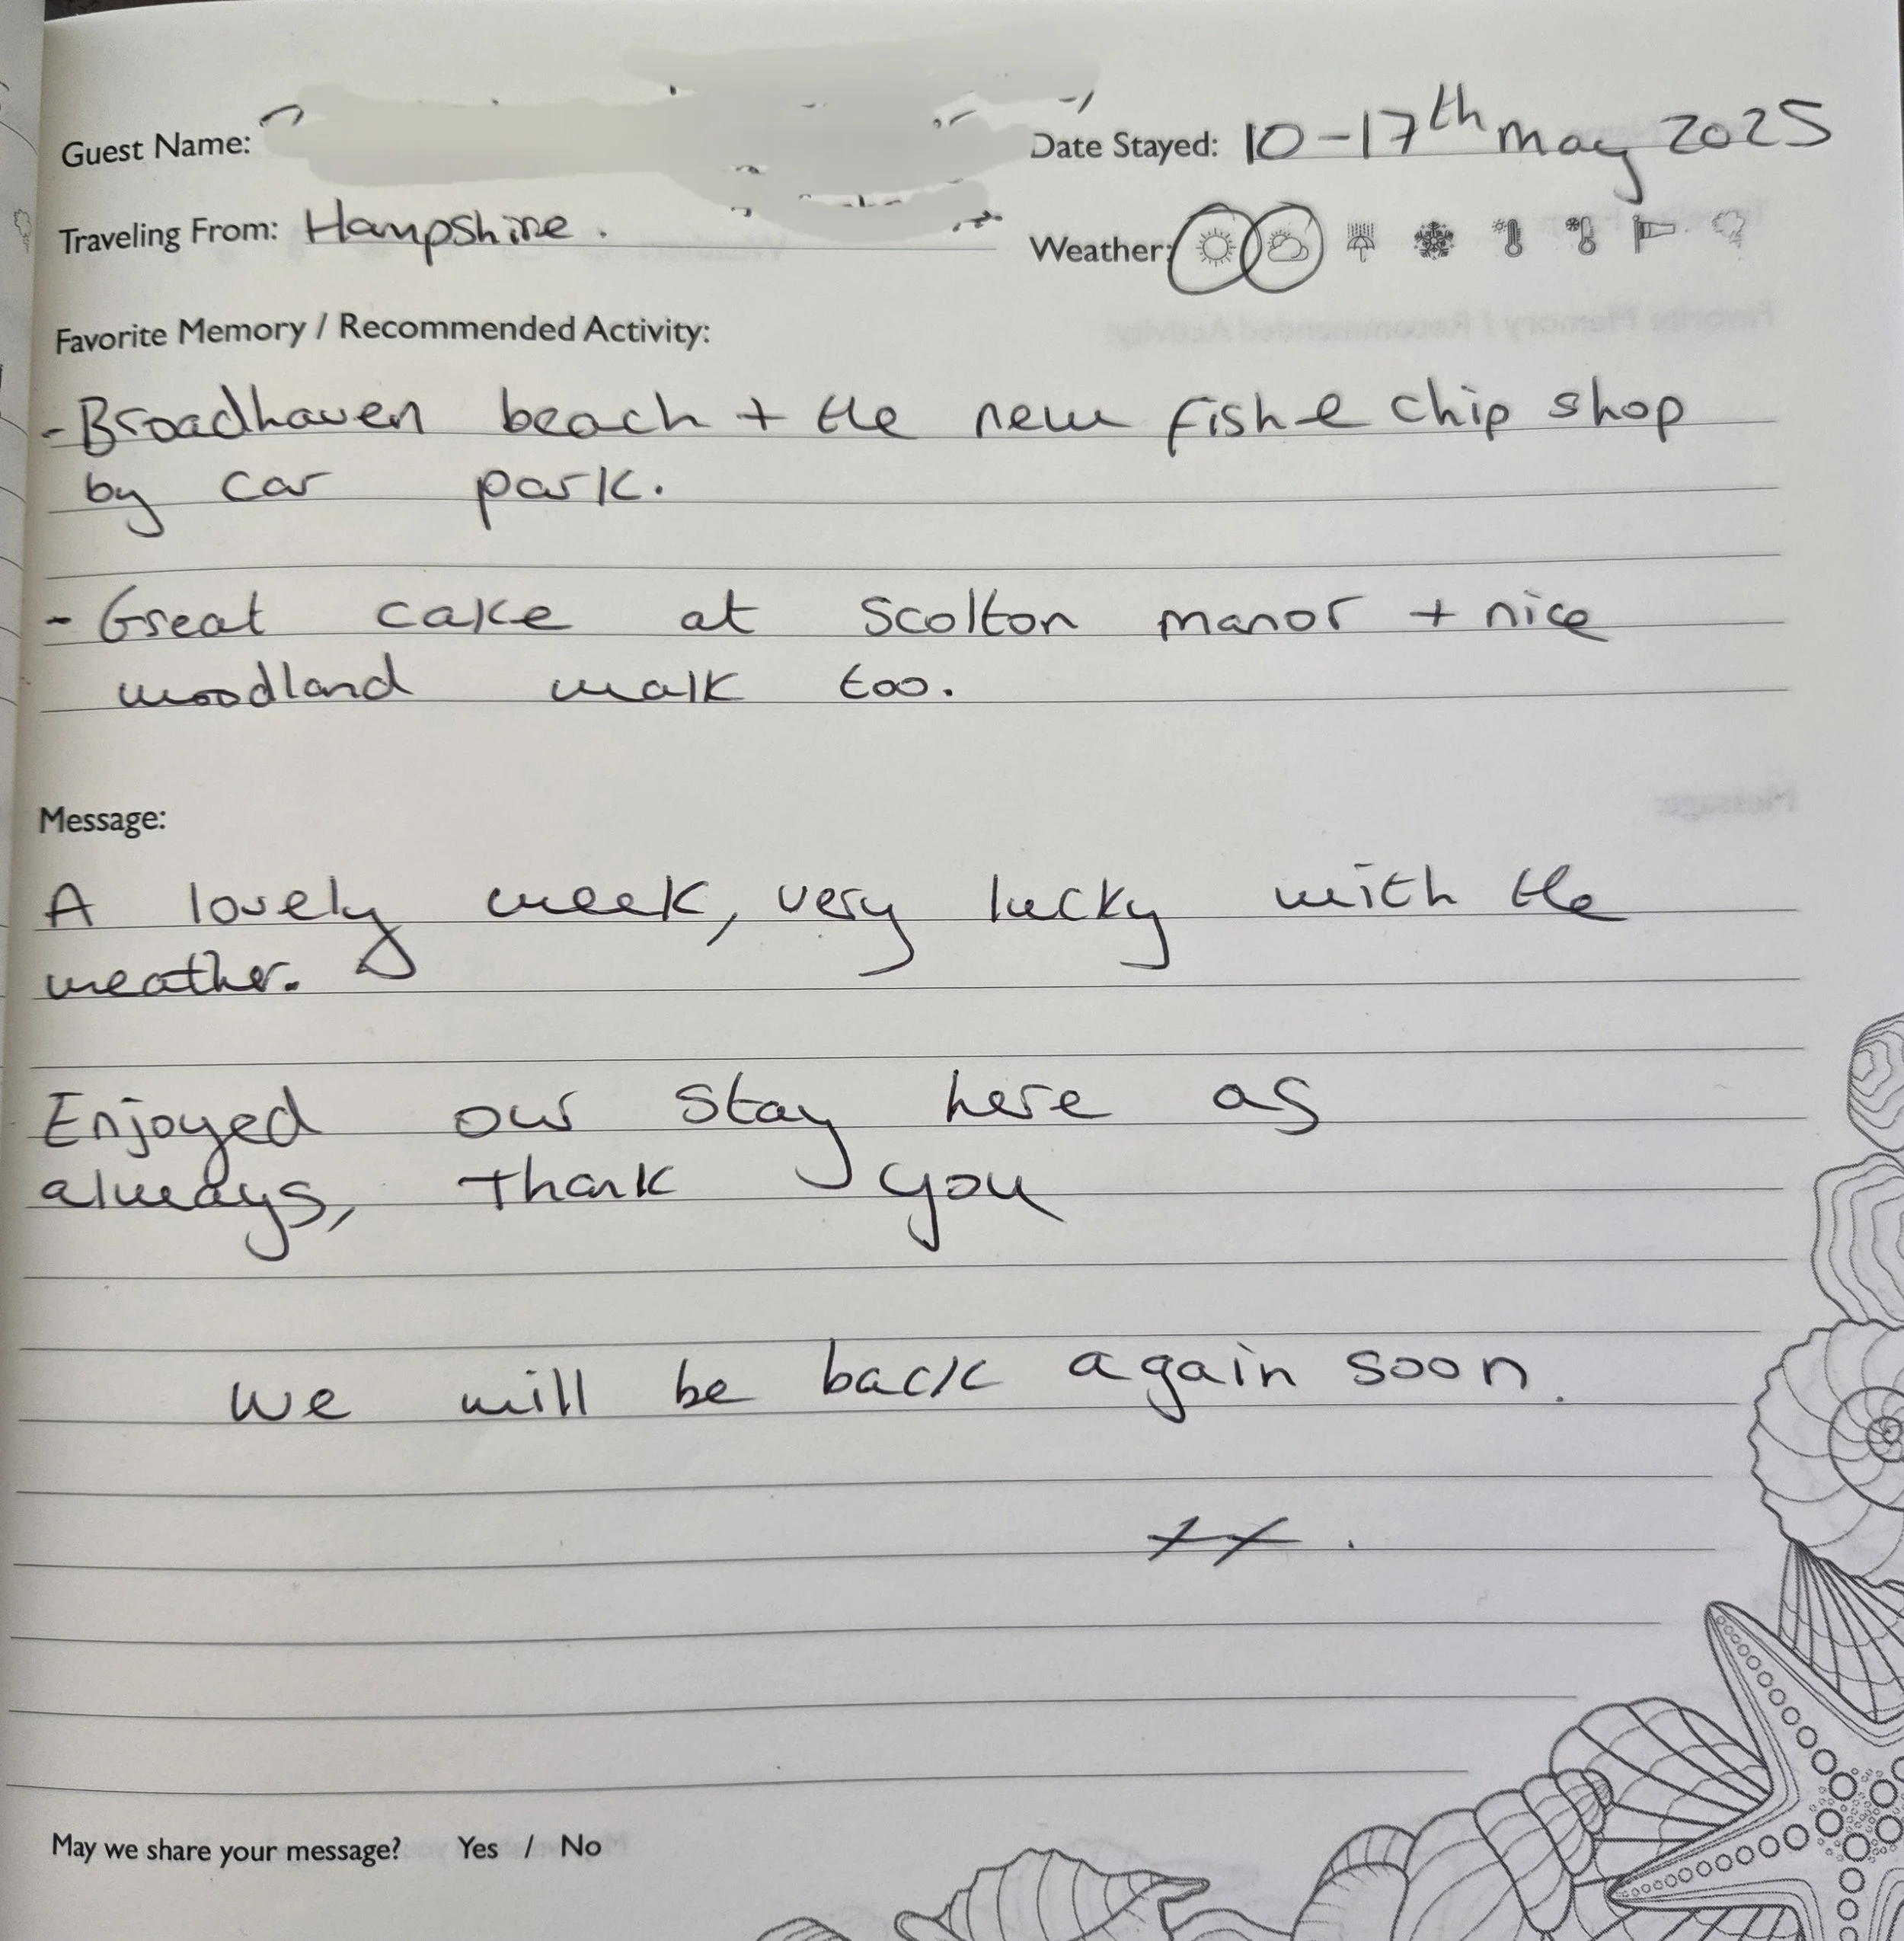 Guest Name:
Date Stayed: 10-17th may 2025
Traveling From: Hampshire.
Weather:
Favorite Memory / Recommended Activity:
- Broadhaven beach + the new fish & chip shop
by car park.
- Great cake at Scolton manor + nice
woodland walk too.
Message:
A lovely week, very lucky with the
weather.
Enjoyed our stay here as
always, thank you
we will be back again soon.
xx.
May we share your message? Yes / No